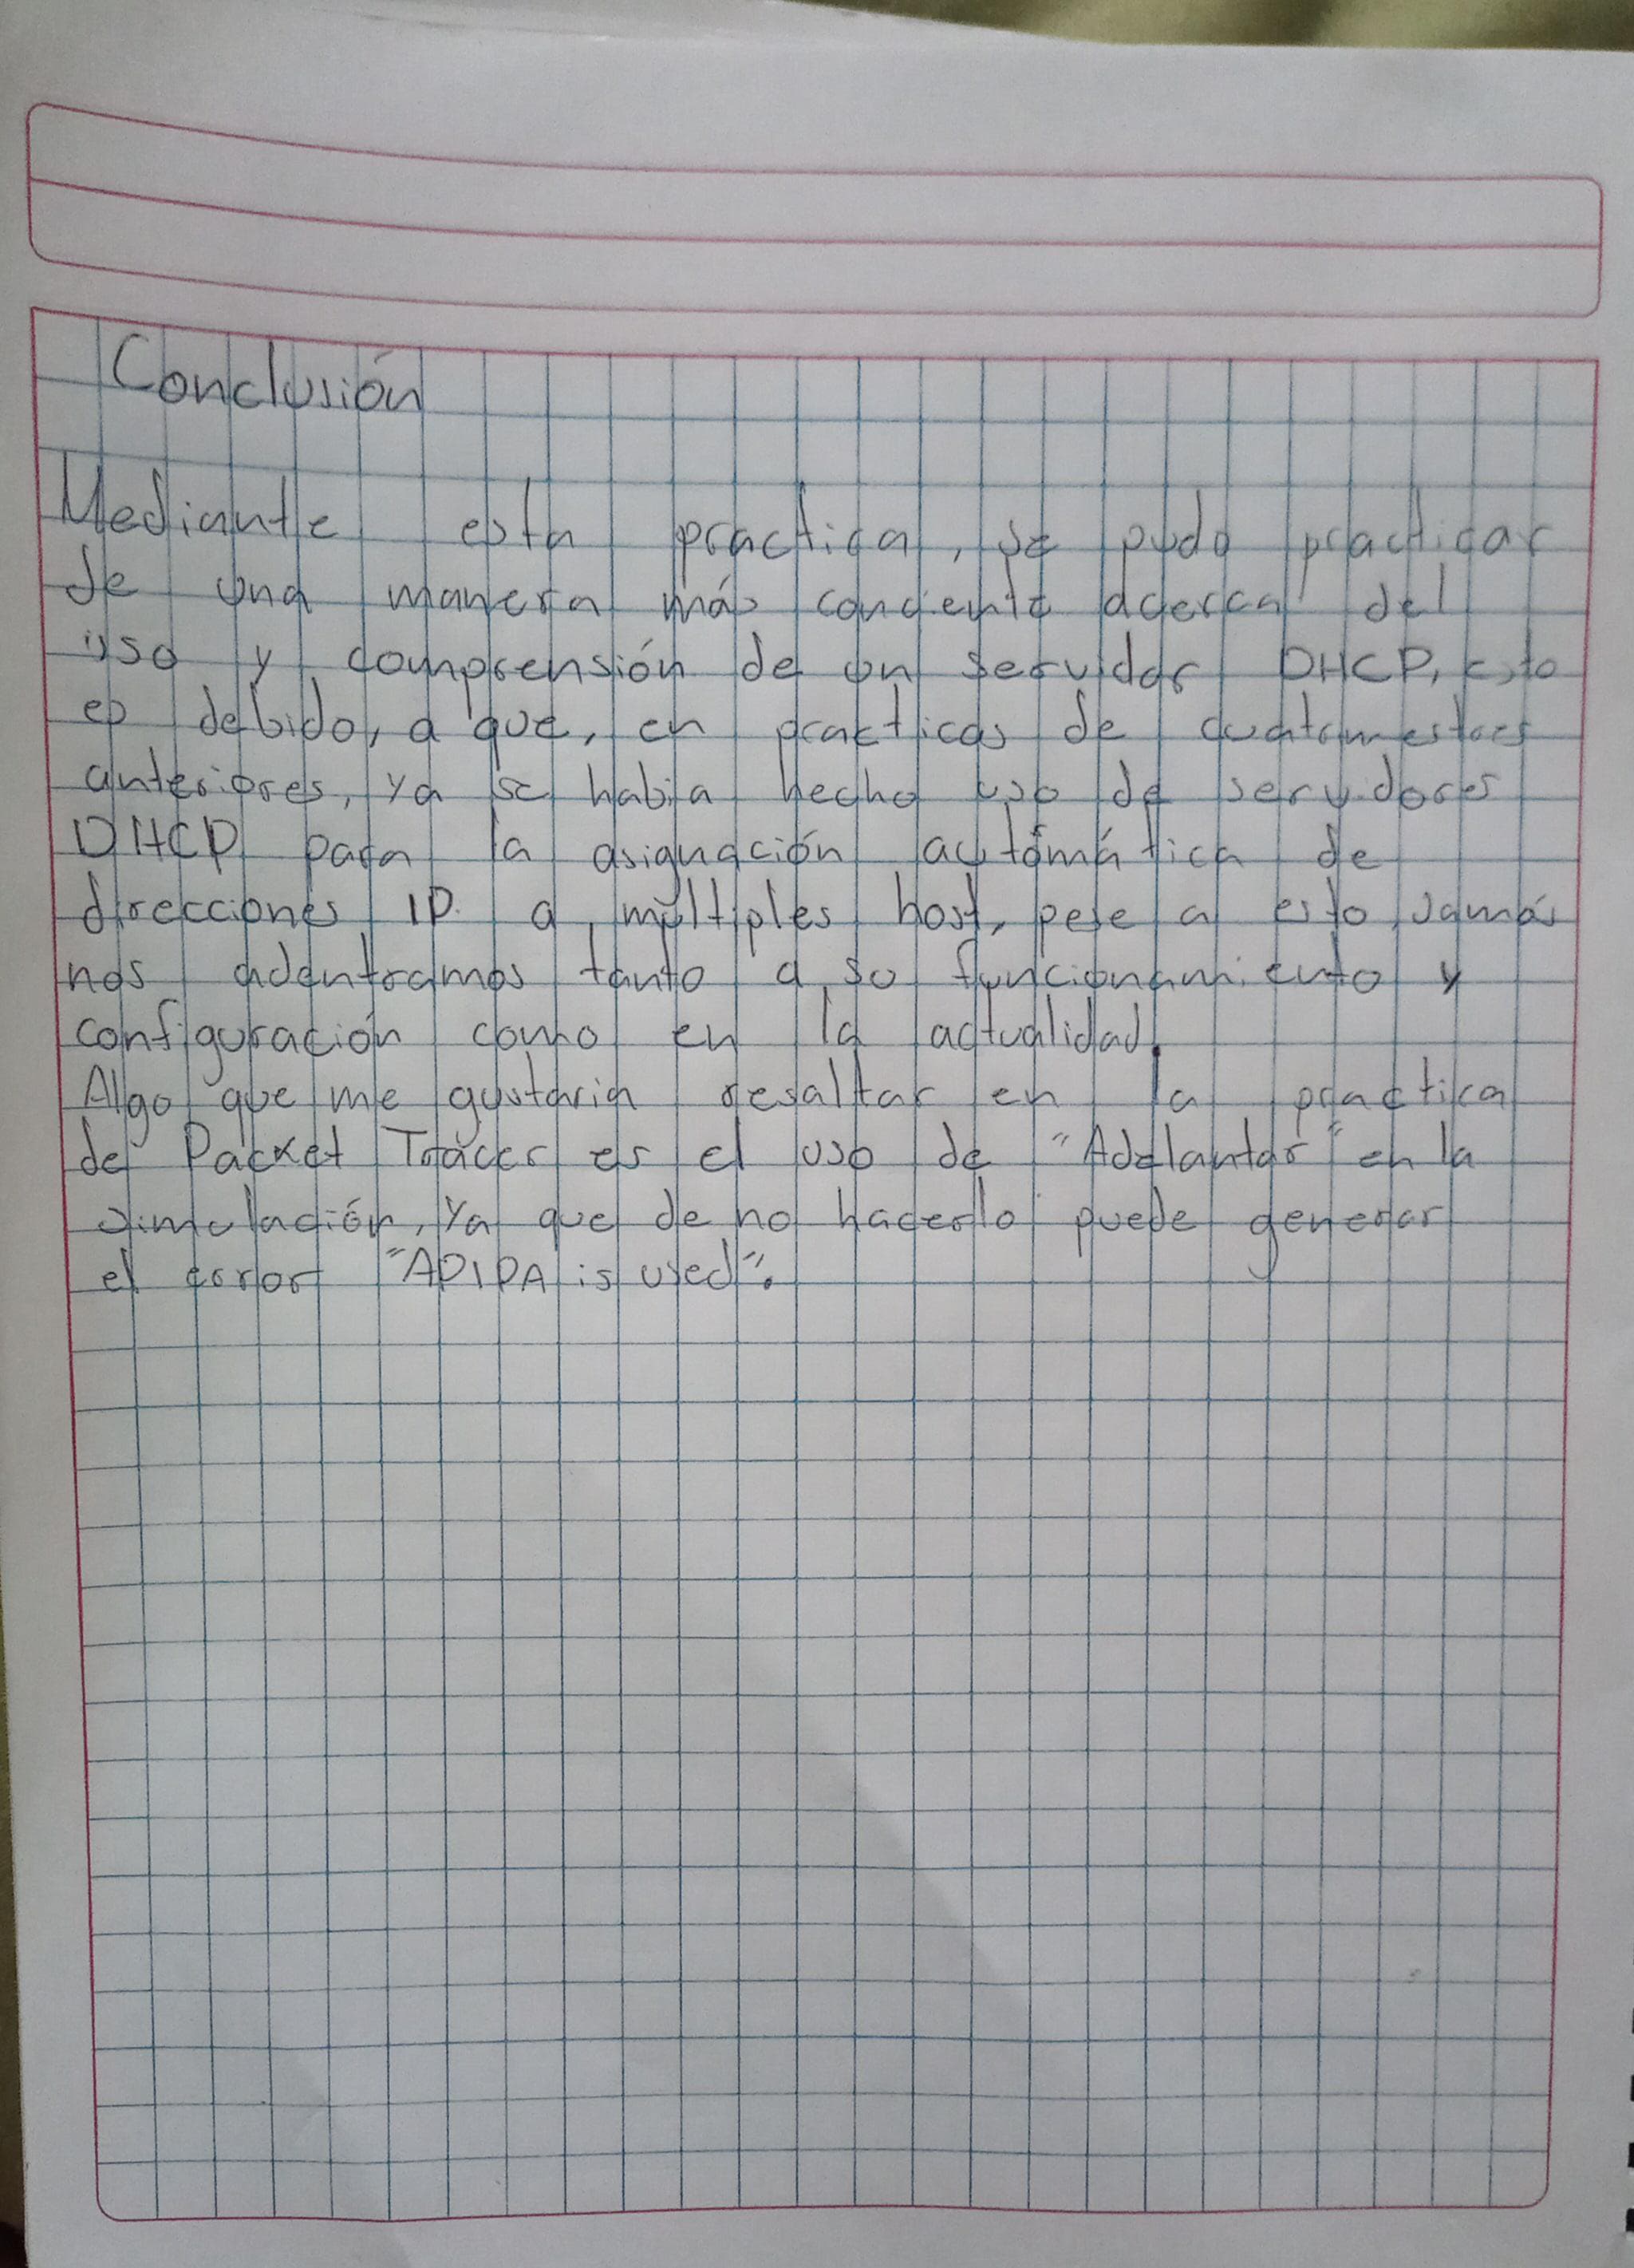 Conclusión
Mediante esta practica, se pudo practicar
de una manera más conciente acerca del
uso y comprensión de un servidor DHCP, esto
es debido, a que, en practicas de cuatrimestres
anteriores, ya se había hecho uso de servidores
DHCP para la asignación automática de
direcciones IP a múltiples host, pese a esto jamás
nos adentramos tanto a su funcionamiento y
configuración como en la actualidad.
Algo que me gustaria resaltar en la practica
de Packet Tracer es el uso de "Adelantar" en la
simulación, ya que de no hacerlo puede generar
el error "APIPA is used".